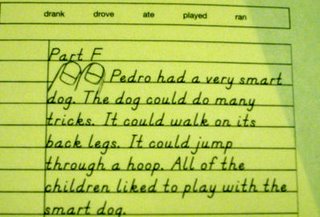 drank drove ate played ran
Part F
Pedro had a very smart
dog. The dog could do many
tricks. It could walk on its
back legs. It could jump
through a hoop. All of the
children liked to play with the
smart dog.